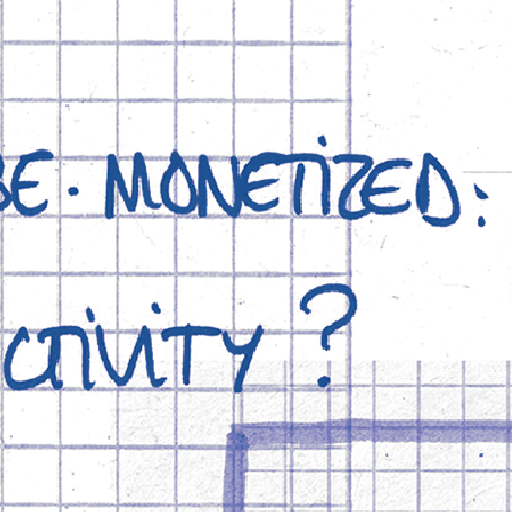 BE · MONETIZED:
CTIVITY ?